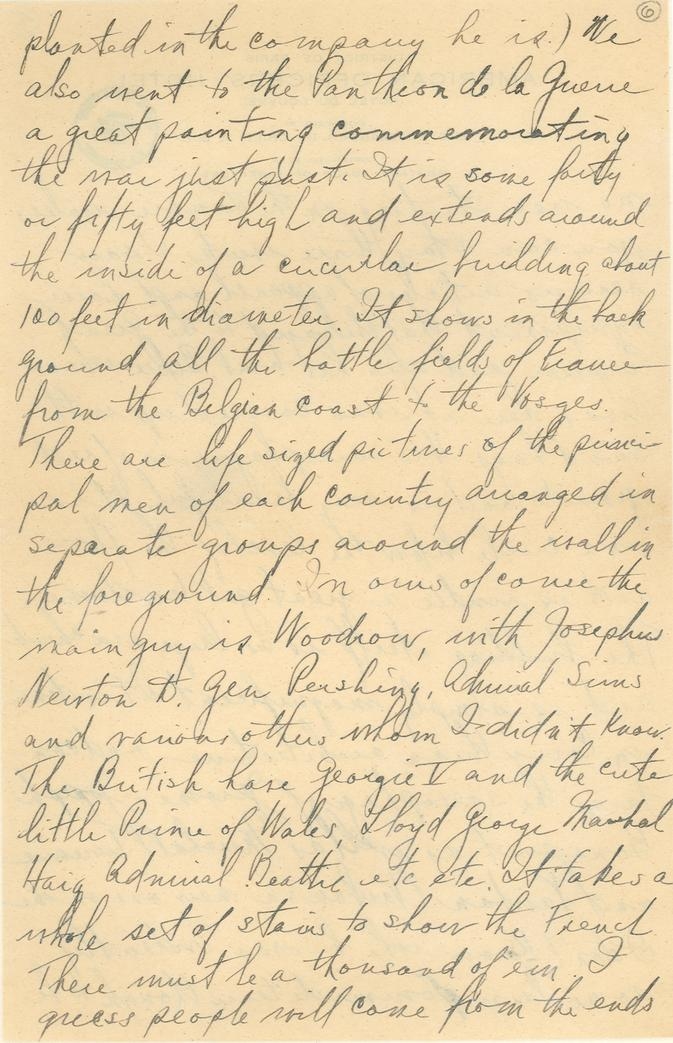 6
planted in the company he is.) We
also went to the Pantheon de la Guerre
a great painting commemorating
the war just past. It is some forty
or fifty feet high and extends around
the inside of a circular building about
100 feet in diameter. It shows in the back
ground all the battle fields of France
from the Belgian coast to the Vosges.
There are life sized pictures of the princi-
pal men of each country arranged in
separate groups around the wall in
the foreground. In ours of course the
main guy is Woodrow, with Josephus
Newton D. Gen Pershing, Admiral Sims
and various others whom I didn't know.
The British have Georgie V and the cute
little Prince of Wales, Lloyd George Marshal
Haig Admiral Beattie etc etc. It takes a
whole set of stairs to show the French
There must be a thousand of 'em. I
guess people will come from the ends